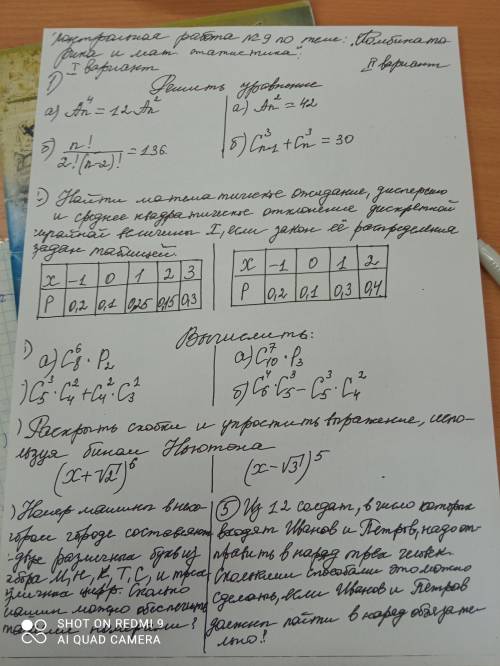 контрольная работа №9 по теме: "Комбинато
рика и мат. статистика".
I вариант II вариант
1) Решить уравнение
а) Aₙ⁴ = 12 Aₙ² а) Aₙ² = 42
б) n! / 2!(n-2)! = 136 б) C³ₙ₋₁ + C³ₙ = 30
2) Найти математическое ожидание, дисперсию
и среднее квадратическое отклонение дискретной
случайной величины X, если закон её распределения
задан таблицей.
X -1 0 1 2 3
P 0,2 0,1 0,25 0,15 0,3
X -1 0 1 2
P 0,2 0,1 0,3 0,4
Вычислить:
а) C₈⁶ · P₂ а) C₁₀⁷ · P₃
) C₅³ · C₄² + C₄² · C₃¹ б) C₆⁴ · C₅³ - C₅³ · C₄²
) Раскрыть скобки и упростить выражение, испо-
льзуя бином Ньютона
(x+√2)⁶ (x-√3)⁵
) Номер машины в неко-
тором городе составляют
двух различных букв из
набора М, Н, К, Т, С, и трех
различных цифр. Сколько
машин можно обеспечить
такими номерами?
⑤ Из 12 солдат, в число которых
входят Иванов и Петров, надо от-
править в наряд трех человек.
Сколькими способами это можно
сделать, если Иванов и Петров
должны пойти в наряд обязате-
льно!!
SHOT ON REDMI 9
AI QUAD CAMERA